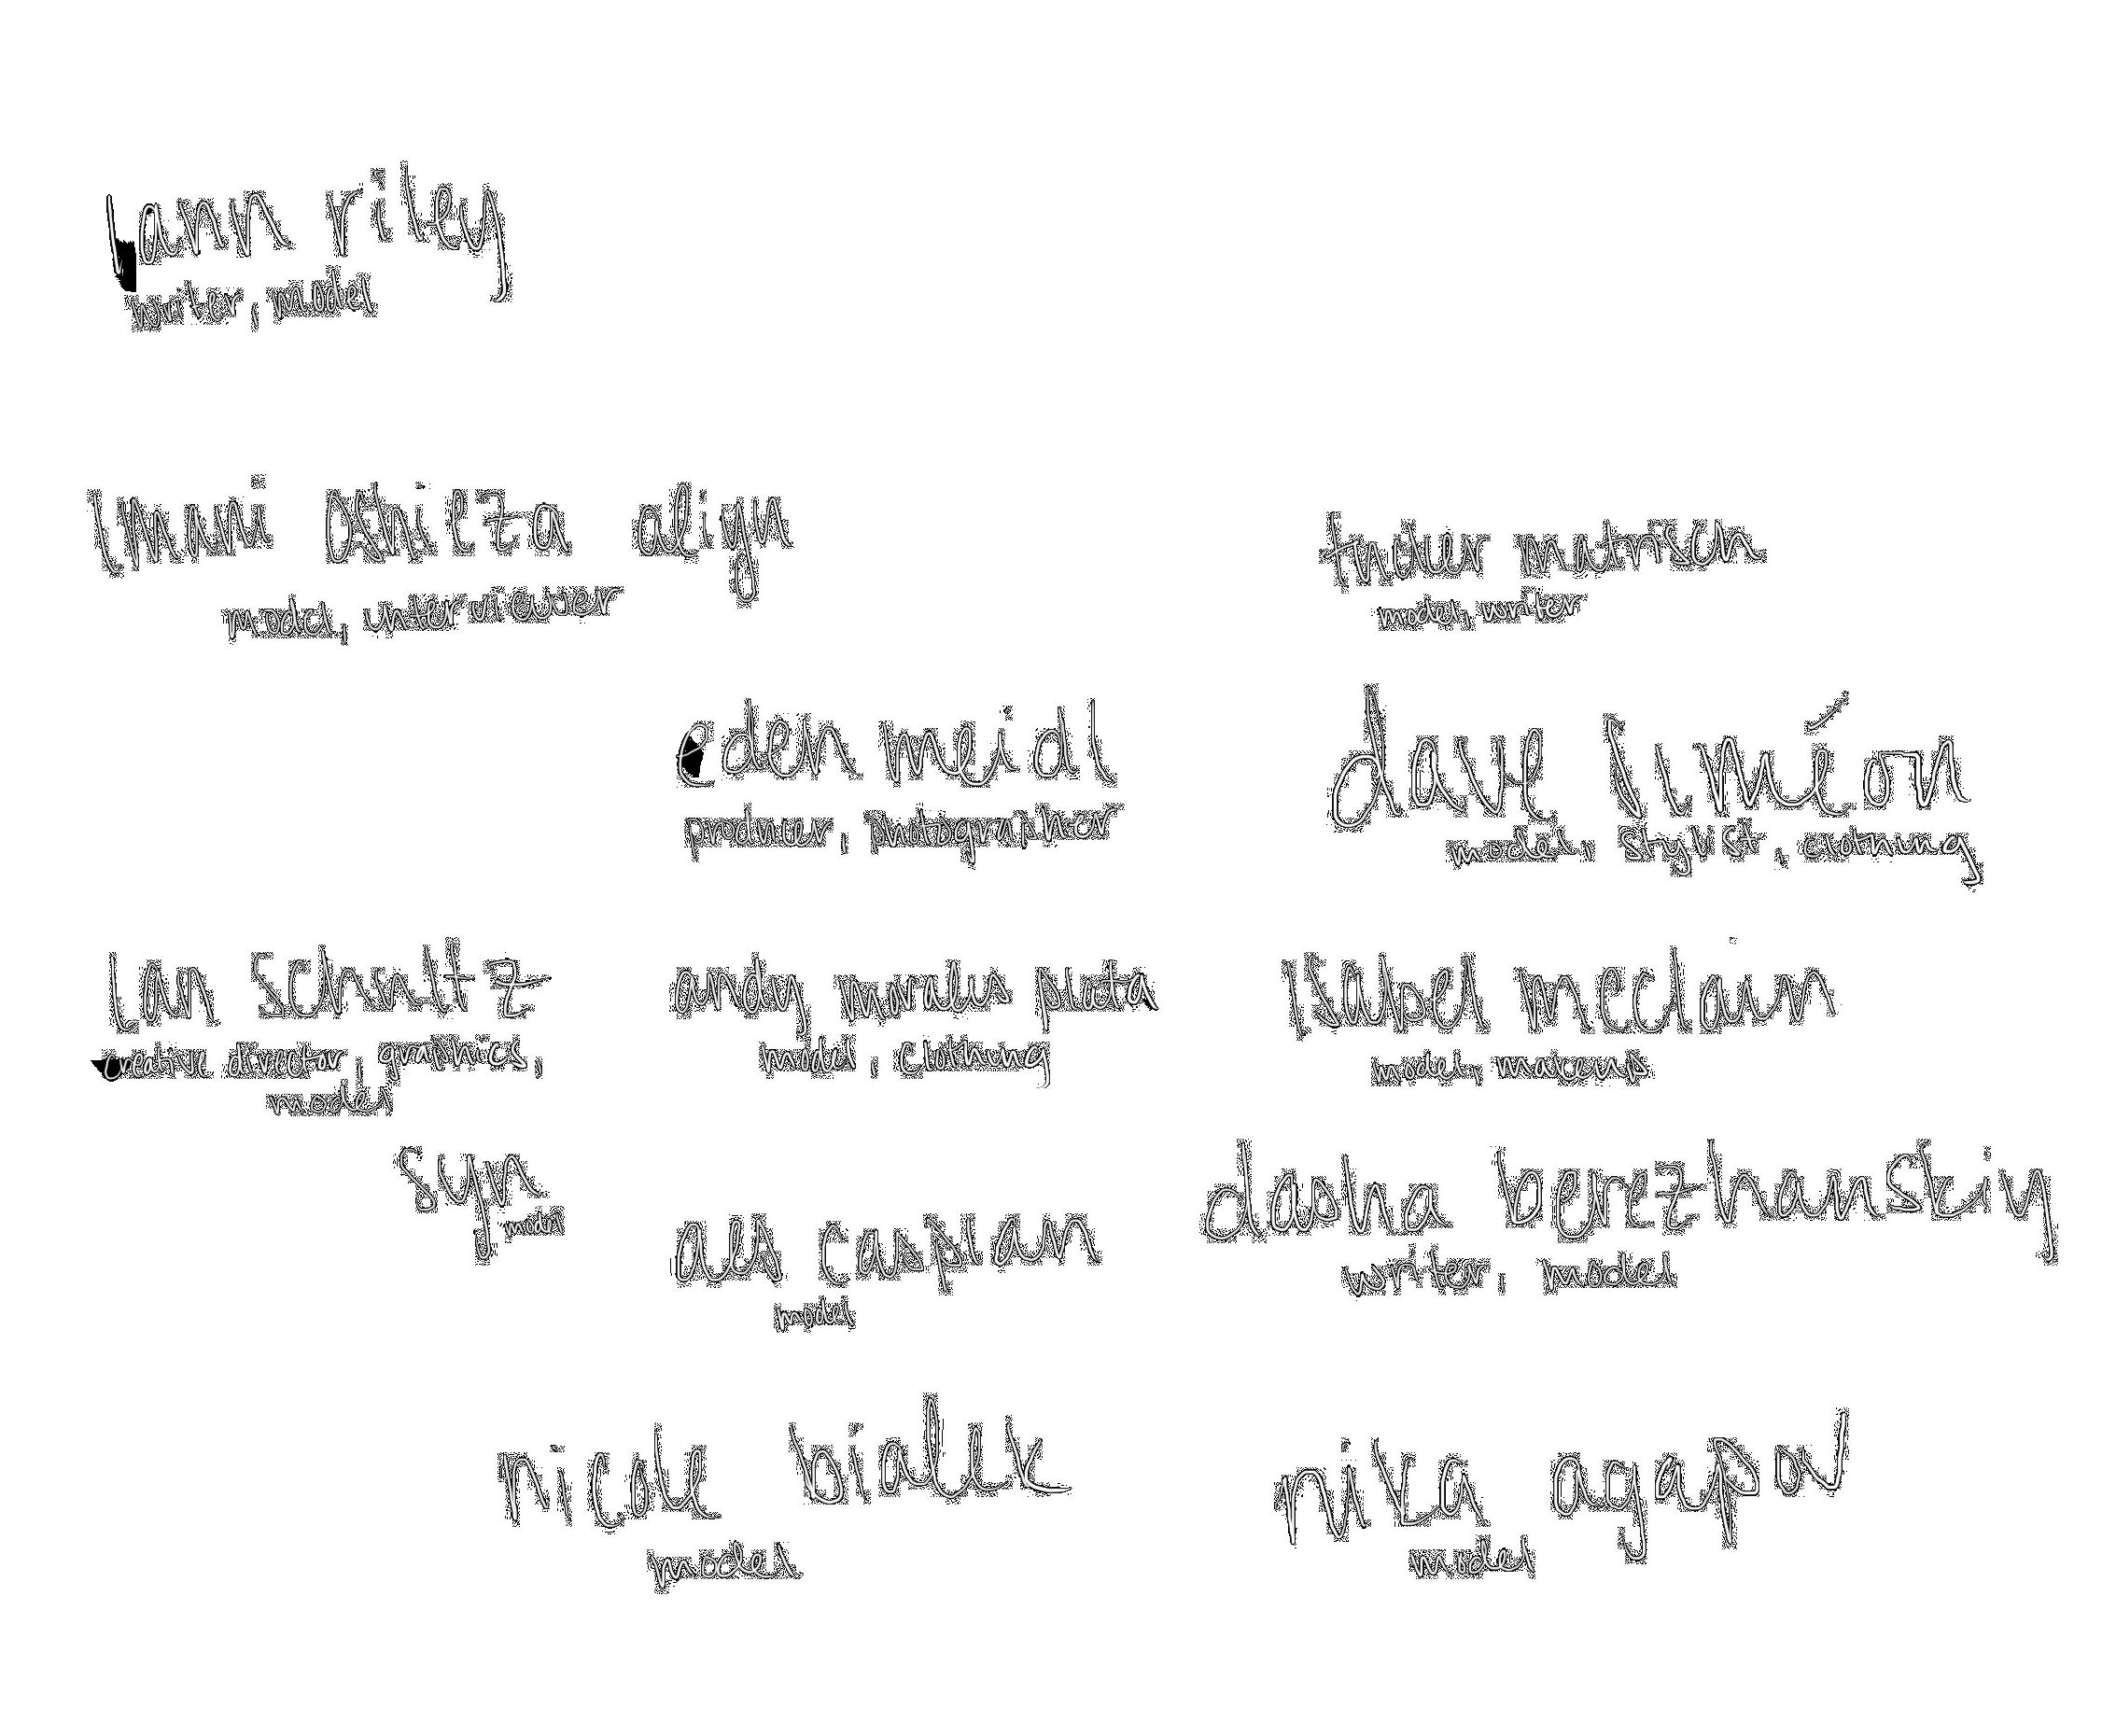 iann riley
writer, model
imani oshieza aliyu
model, interviewer
matrisch
model, writer
eden meidl
producer, photographer
dave siméon
model, stylist, clothing
ian schultz
creative director, graphics,
model
andy morales plata
model, clothing
isabel mcclain
model, makeup
syn
model
ales caspian
model
dasha berezhanskiy
writer, model
nicole bialek
model
nika agapov
model